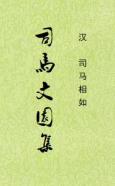 汉 司马相如
司馬文園集